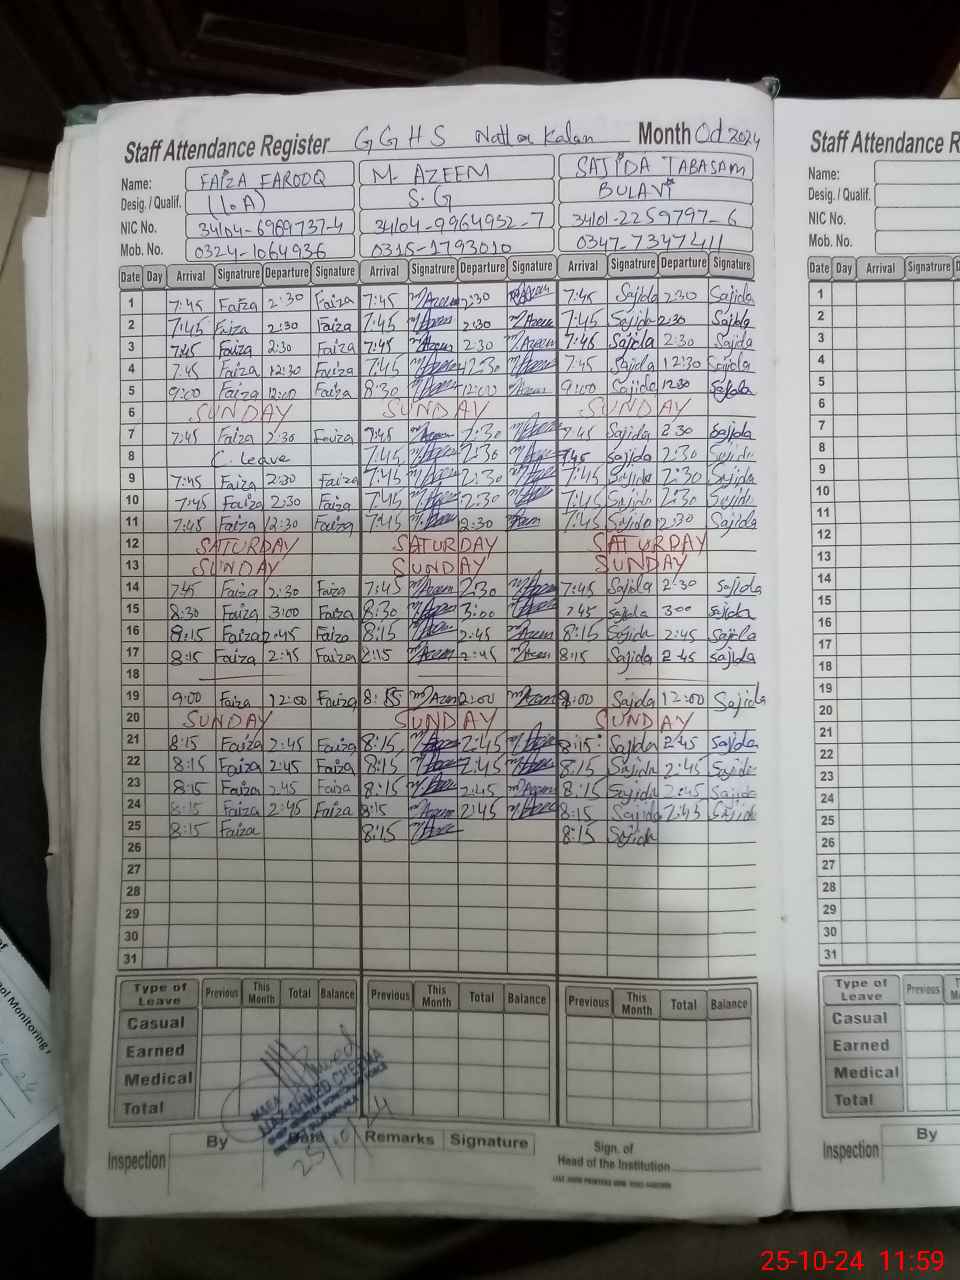 Staff Attendance Register GGHS Nattar Kalan Month Oct 2024
Name: FAIZA FAROOQ M. AZEEM SAJIDA TABASAM
Desig. / Qualif. S.G BULAVI
NIC No. 34104-6969737-4 34104-9964932-7 34101-2259797-6
Mob. No. 0324-1064936 0315-1793010 0347-7347411
Date Day Arrival Signature Departure Signature Arrival Signature Departure Signature Arrival Signature Departure Signature
1 7:45 Faiza 2:30 Faiza 7:45 M/Azeem 2:30 M/Azeem 7:45 Sajida 2:30 Sajida
2 7:45 Faiza 2:30 Faiza 7:45 M/Azeem 2:30 M/Azeem 7:45 Sajida 2:30 Sajida
3 7:45 Faiza 2:30 Faiza 7:45 M/Azeem 2:30 M/Azeem 7:45 Sajida 2:30 Sajida
4 7:45 Faiza 12:30 Faiza 7:45 M/Azeem 12:30 M/Azeem 7:45 Sajida 12:30 Sajida
5 9:00 Faiza 12:00 Faiza 8:30 M/Azeem 12:00 M/Azeem 9:00 Sajida 12:30 Sajida
6 SUNDAY SUNDAY SUNDAY
7 7:45 Faiza 2:30 Faiza 7:45 M/Azeem 2:30 M/Azeem 7:45 Sajida 2:30 Sajida
8 C. Leave 7:45 M/Azeem 2:30 M/Azeem 7:45 Sajida 2:30 Sajida
9 7:45 Faiza 2:30 Faiza 7:45 M/Azeem 2:30 M/Azeem 7:45 Sajida 2:30 Sajida
10 7:45 Faiza 2:30 Faiza 7:45 M/Azeem 2:30 M/Azeem 7:45 Sajida 2:30 Sajida
11 7:45 Faiza 12:30 Faiza 7:45 M/Azeem 2:30 Azeem 7:45 Sajida 2:30 Sajida
12 SATURDAY SATURDAY SATURDAY
13 SUNDAY SUNDAY SUNDAY
14 7:45 Faiza 2:30 Faiza 7:45 M/Azeem 2:30 M/Azeem 7:45 Sajida 2:30 Sajida
15 8:30 Faiza 3:00 Faiza 8:30 M/Azeem 3:00 M/Azeem 7:45 Sajida 3:00 Sajida
16 8:15 Faiza 2:45 Faiza 8:15 M/Azeem 2:45 M/Azeem 8:15 Sajida 2:45 Sajida
17 8:15 Faiza 2:45 Faiza 8:15 M/Azeem 2:45 M/Azeem 8:15 Sajida 2:45 Sajida
18
19 9:00 Faiza 12:00 Faiza M/Azeem 12:00 M/Azeem 9:00 Sajida 12:00 Sajida
20 SUNDAY SUNDAY SUNDAY
21 8:15 Faiza 2:45 Faiza 8:15 M/Azeem 2:45 M/Azeem 8:15 Sajida 2:45 Sajida
22 8:15 Faiza 2:45 Faiza 8:15 M/Azeem 2:45 M/Azeem 8:15 Sajida 2:45 Sajida
23 8:15 Faiza 2:45 Faiza 8:15 M/Azeem 2:45 M/Azeem 8:15 Sajida 2:45 Sajida
24 8:15 Faiza 2:45 Faiza 8:15 M/Azeem 2:45 M/Azeem 8:15 Sajida 2:45 Sajida
25 8:15 Faiza 8:15 M/Azeem 8:15 Sajida
26
27
28
29
30
31
Type of Leave Previous This Month Total Balance Previous This Month Total Balance Previous This Month Total Balance
Casual
Earned
Medical
Total
MAEA
NIAZ AHMED CHEEMA
25/10/24
Inspection By Date Remarks Signature Sign. of Head of the Institution
Staff Attendance R
Name:
Desig. / Qualif.
NIC No.
Mob. No.
Date Day Arrival Signature
1
2
3
4
5
6
7
8
9
10
11
12
13
14
15
16
17
18
19
20
21
22
23
24
25
26
27
28
29
30
31
Type of Leave Previous
Casual
Earned
Medical
Total
Inspection By
ool Monitoring
25-10-24 11:59